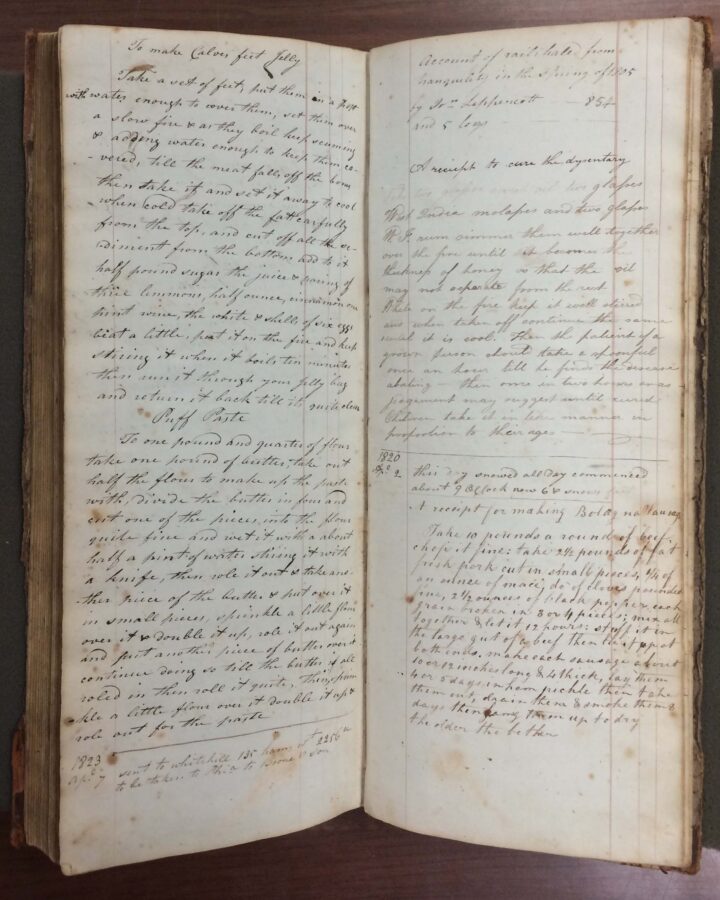 To make Calves feet Jelly
Take a set of feet, put them in a pot
with water enough to cover them, set them over
a slow fire & as they boil keep scuming
& adding water enough to keep them co-
-vered, till the meat falls off the bone
then take it and set it away to cool
when cold take off the fat carfully
from the top, and cut off all the se-
diment from the bottom add to it
half pound sugar the juice & of
three lemmons, half ounce, cinnamon one
pint wine, the white & shells of six eggs
beat a little, put it on the fire and keep
stiring it when it boils ten minutes
then run it through your Jelly bag
and return it back till its quite clear
Puff Paste
To one pound and quarter of flour
take one pound of butter, take out
half the flour to make up the paste
with, divide the butter in four and
cut one of the pieces, into the flour
quite fine and wet it with about
half a pint of water stiring it with
a knife, then role it out & take ano-
ther piece of the butter & put over it
in small pieces, sprinkle a little flour
over it & double it up, role it out again
and put another piece of butter over it
continue doing so till the butter is all
roled in then roll it quite thin, sprin-
kle a little flour over it double it up &
role out for the paste
1823
7 sent to whitehill 135 hams 2256
to be taken to & Son
Account of rails haled from
tranquility in the Spring of 1805
by Jos Lippencott — 854
and 5 logs
A receipt to cure the dysentary
two glasses
West India molasses and two glasses
W. I. rum simmer them well together
over the fire until it becomes the
thickness of honey so that the oil
may not separate from the rest
While on the fire keep it well stirred
and when taken off continue the same
until it is cool. Then the patient if a
grown person shout take a spoonful
once an hour till he finds the disease
abating — then once in two hours or as
judgement may suggest until cured
Children take it in like manner in
proportion to their age. —
1820
2 this day snowed all day commenced
about 9 O Clock now 6 & snows
A receipt for making Bolagna Sausag
Take 10 pounds a round of beef
chop it fine: take 2½ pounds of fat
fresh pork cut in small pieces, ¼ of
an ounce of mace, do of cloves pounded
fine, 2½ ounces of black pepper, each
grain broken in 3 or 4 pieces; mix all
together & let it 12 hours: stuff it in
the large gut of a beef then tie it up at
both ends. make each sausage about
10 or 12 inches long & 4 thick, lay them
4 or 5 days in ham pickle then take
them out, drain them & smoke them 8
days then hang them up to dry
the older the better